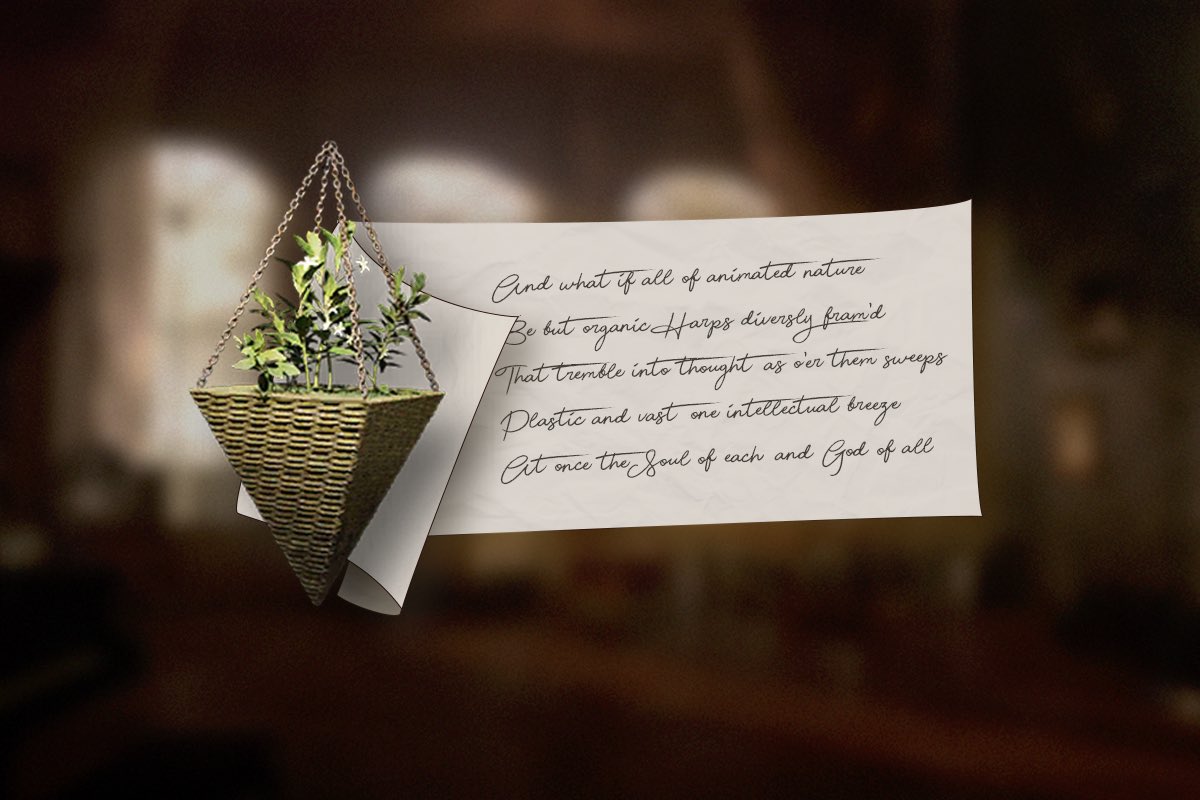 And what if all of animated nature
Be but organic Harps diversly fram'd
That tremble into thought as o'er them sweeps
Plastic and vast one intellectual breeze
At once the Soul of each and God of all